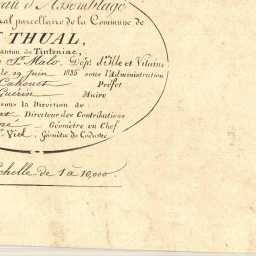 d'Assemblage
parcellaire de la Commune de
THUAL,
Canton de Tinteniac,
St Malo, Dépt d'Ille et Vilaine
le 29 juin 1835 sous l'Administration
Cahouet Préfet
Guérin Maire
sous la Direction de
Directeur des Contributions
Géomètre en Chef
Viel, Géomètre du Cadastre
Echelle de 1 à 10,000.